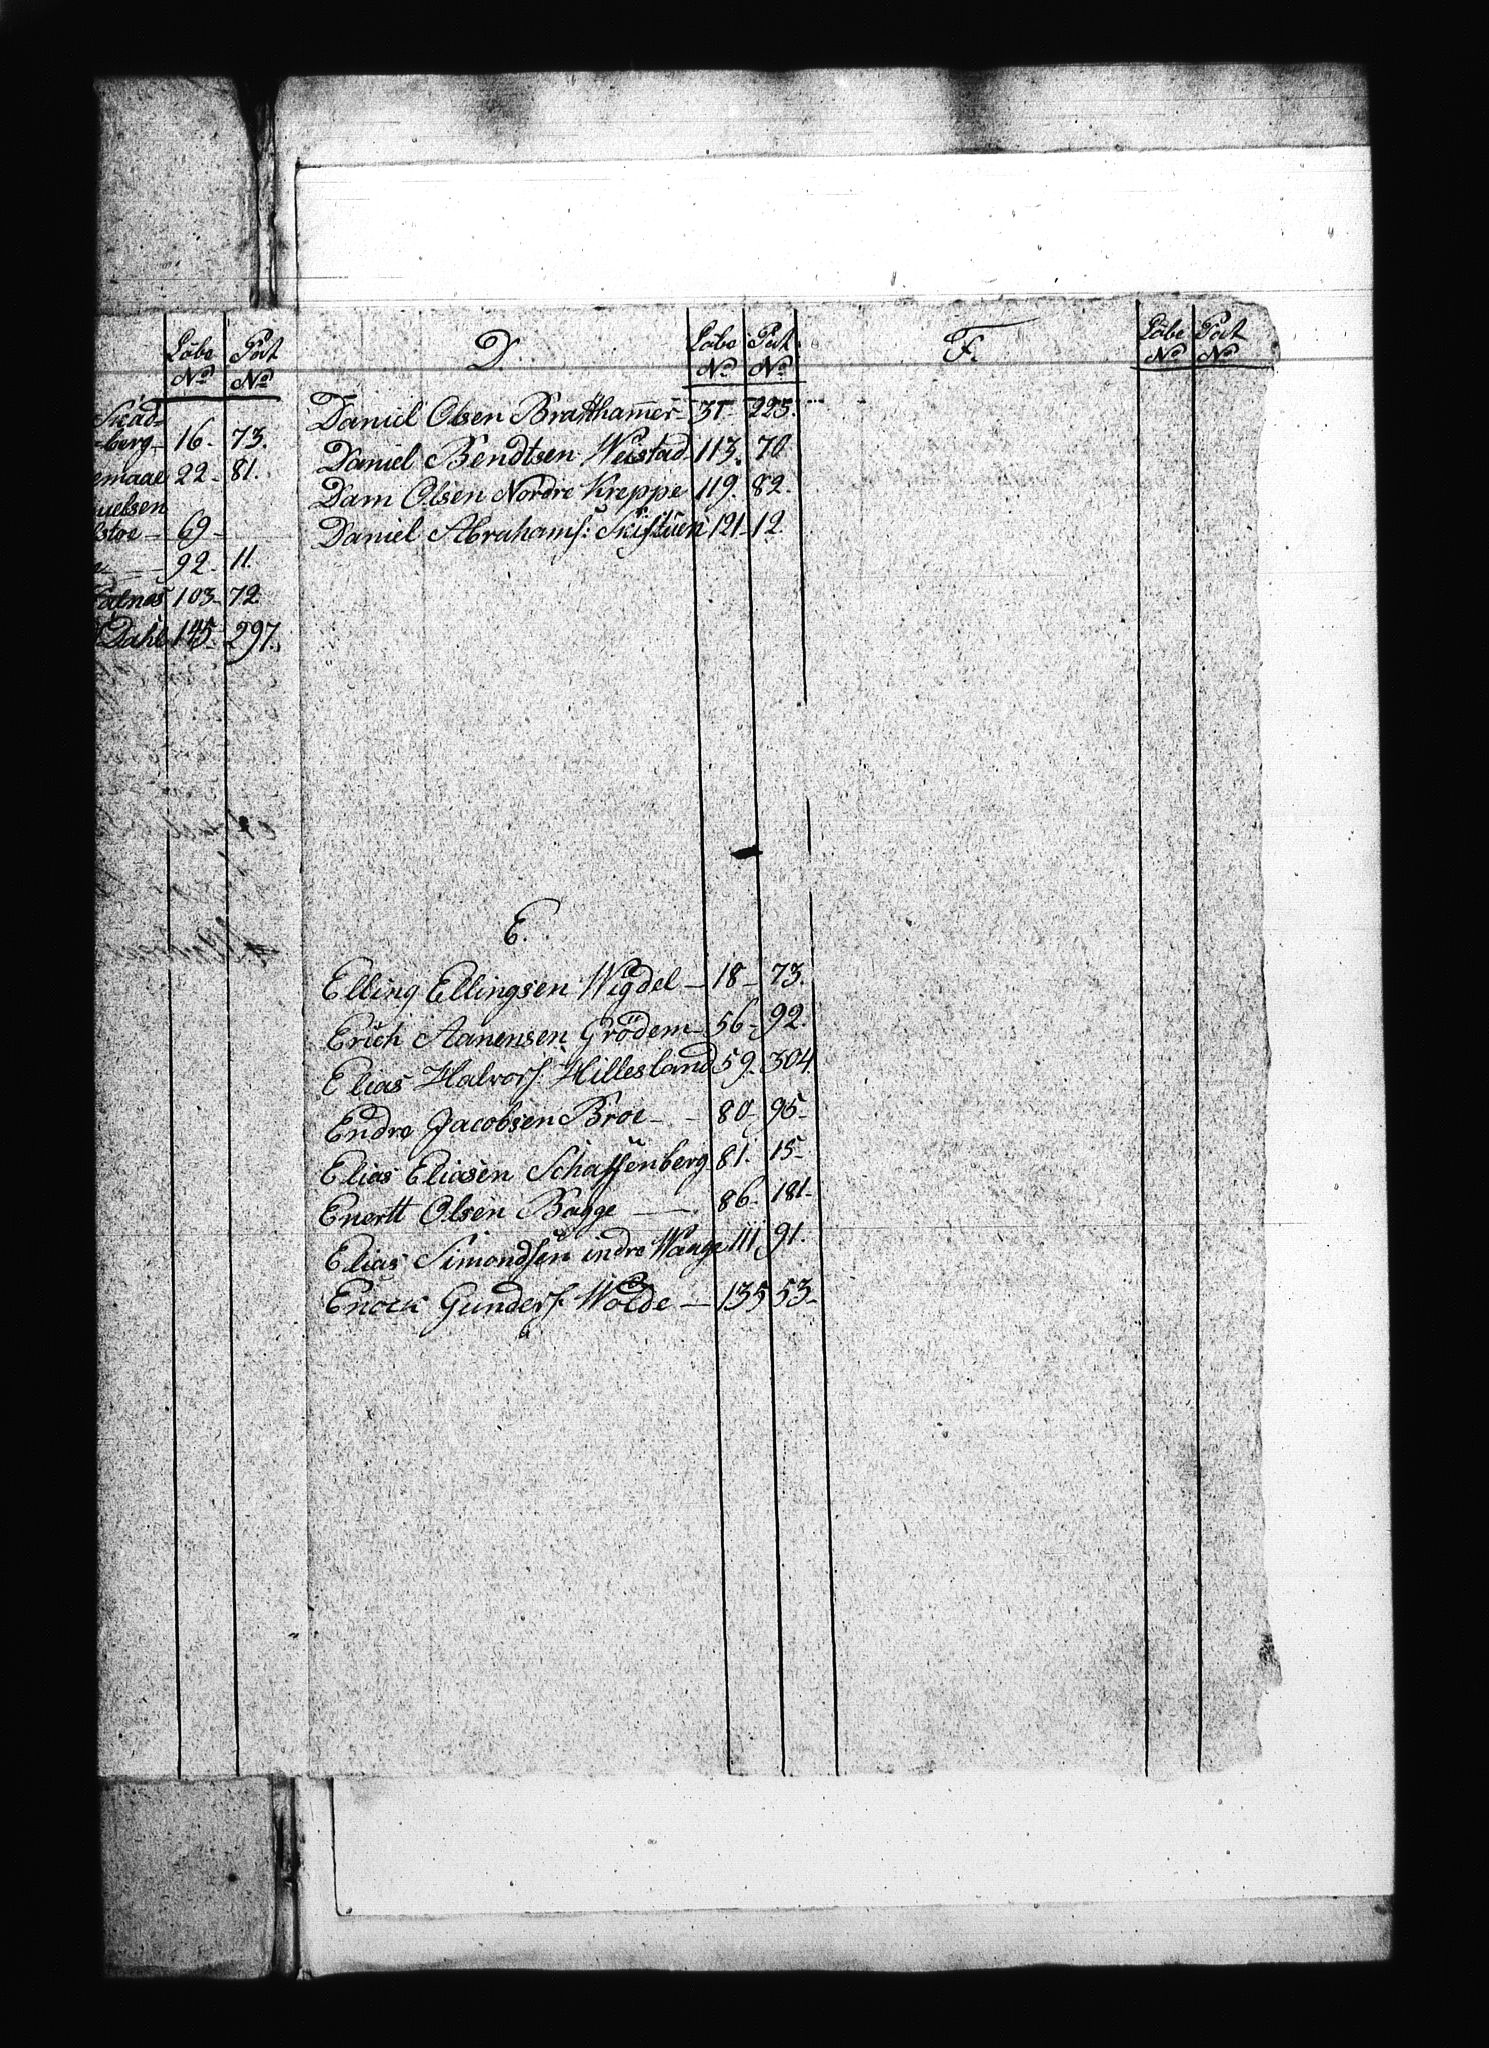 Löbe No Post No
Skad-
berg 16. 73.
emaae 22. 81.
uelsen
stoe 69
92. 11.
103 72
Dahl 145 297.
D. Löbe No Post No
Daniel Olsen Bratthammer 31. 225.
Daniel Bendtsen Weistad 113. 70
Dam Olsen Nordre Kreppe 119. 82.
Daniel Abrahams: 121 12
E.
Elling Ellingsen Wigdel 18 73.
Erich Aanensen Grödem 56 92.
Elias Halvors: Hillesland 59. 304
Endre Jacobsen Broe 80 95
Elias Eliasen Schaffenberg 81. 15
Enertt Olsen Bagge 86 181
Elias Simondsen indre Waage 111 91.
Enock Gunders: Wolde 135 53
F. Löbe No Post No